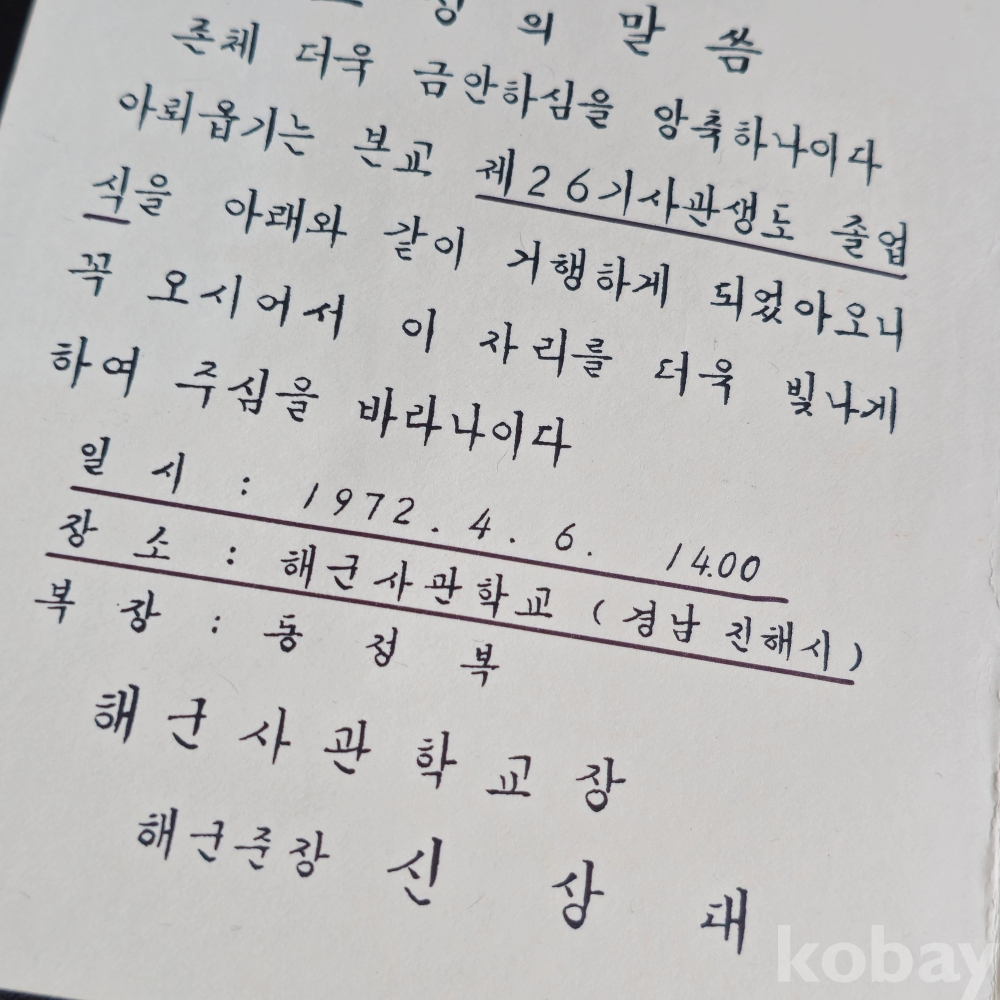 의 말 씀
존체 더욱 금안하심을 앙축하나이다
아뢰옵기는 본교 제26기사관생도 졸업
식을 아래와 같이 거행하게 되었아오니
꼭 오시어서 이 자리를 더욱 빛나게
하여 주심을 바라나이다
일 시 : 1972. 4. 6. 14.00
장 소 : 해군사관학교 (경남 진해시)
복 장 : 동 정 복
해군사관학교장
해군준장 신 상 대
kobay